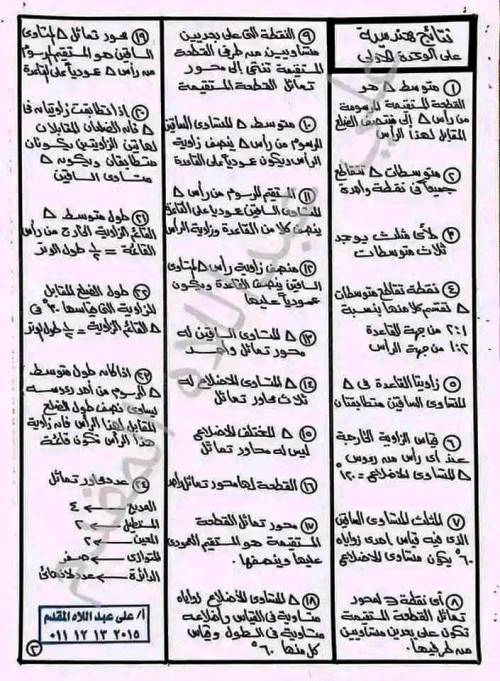 نتائج هندسية
على الوحدة الأولى
١ متوسط △ هو
القطعة المستقيمة المرسومة
من رأس △ إلى منتصف الضلع
المقابل لهذا الرأس
٢ متوسطات △ تتقاطع
جميعاً فى نقطة واحدة
٣ لأى مثلث يوجد
ثلاث متوسطات
٤ نقطة تقاطع متوسطات
△ تقسم كلا منها بنسبة
٢:١ من جهة القاعدة
١:٢ من جهة الرأس
٥ زاويتا القاعدة فى △
المتساوى الساقين متطابقتان
٦ قياس الزاوية الخارجة
عند أى رأس من رءوس
△ المتساوى الأضلاع = ١٢٠°
٧ المثلث المتساوى الساقين
الذى فيه قياس إحدى زواياه
٦٠° يكون متساوى الأضلاع
٨ أى نقطة ∈ لمحور
تماثل القطعة المستقيمة
تكون على بعدين متساويين
من طرفيها.
٩ النقطة التى على بعدين
متساويين من طرفى القطعة
المستقيمة تنتمى إلى محور
تماثل القطعة المستقيمة
١٠ متوسط △ المتساوى الساقين
المرسوم من رأس △ ينصف زاوية
الرأس ويكون عمودياً على القاعدة
١١ المستقيم المرسوم من رأس △
المتساوى الساقين عمودياً على القاعدة
ينصف كلا من القاعدة وزاوية الرأس
١٢ منصف زاوية رأس △ المتساوى
الساقين ينصف القاعدة ويكون
عمودياً عليها
١٣ △ المتساوى الساقين له
محور تماثل واحد
١٤ △ المتساوى الأضلاع له
ثلاث محاور تماثل
١٥ △ المختلف الأضلاع
ليس له محاور تماثل
١٦ القطعة لها محور تماثل واحد
١٧ محور تماثل القطعة
المستقيمة هو المستقيم العمودى
عليها وينصفها.
١٨ △ المتساوى الأضلاع زواياه
متساوية فى القياس وأضلاعه
متساوية فى الطول وقياس
كل منها ٦٠°
١٩ محور تماثل △ المتساوى
الساقين هو المستقيم المرسوم
من رأس △ عمودياً على القاعدة
٢٠ إذا تطابقت زاويتان فى
△ فإنه الضلعان المقابلان
لهاتين الزاويتين يكونان
متطابقان ويكون △
متساوى الساقين
٢١ طول متوسط △
القائم الزاوية الخارج من رأس
القائمة = ½ طول الوتر
٢٢ طول الضلع المقابل
للزاوية التى قياسها ٣٠° فى
△ القائم الزاوية = ½ طول الوتر
٢٣ إذا كان طول متوسط
△ المرسوم من أحد رءوسه
يساوى نصف طول الضلع
المقابل لهذا الرأس فإن زاوية
هذا الرأس تكون قائمة
٢٤ عدد محاور تماثل
المربع ← ٤
المستطيل ← ٢
المعين ← ٢
المتوازى ← صفر
الدائرة ← عدد لا نهائى
أ/ على عبد اللاه المقدم
٠١١ ١٢ ١٣ ٢٠١٥
٣